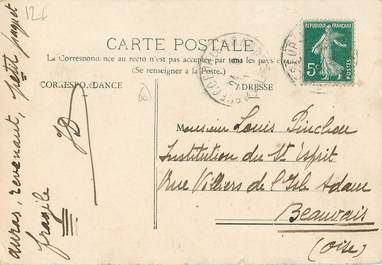 12.6
CARTE POSTALE
La Correspondance au recto n'est pas acceptée par tous les pays
(Se renseigner à la Poste.)
CORRESPONDANCE
ADRESSE
RÉPUBLIQUE FRANÇAISE
5c
POSTES
Monsieur Louis Pinchou
Institution du St Esprit
Rue Villiers de l'Isle Adam
Beauvais
(Oise)
auras, revenant, petit paquet
fragile